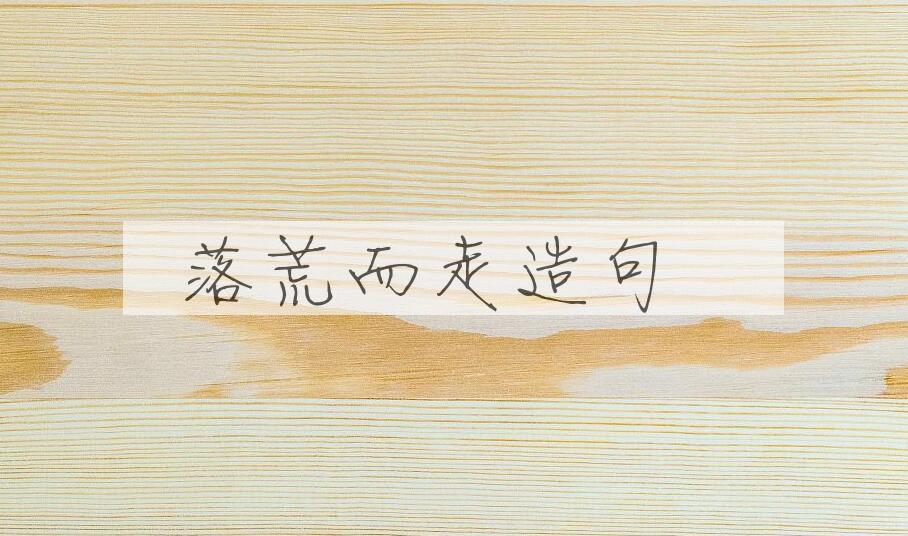 落荒而走造句